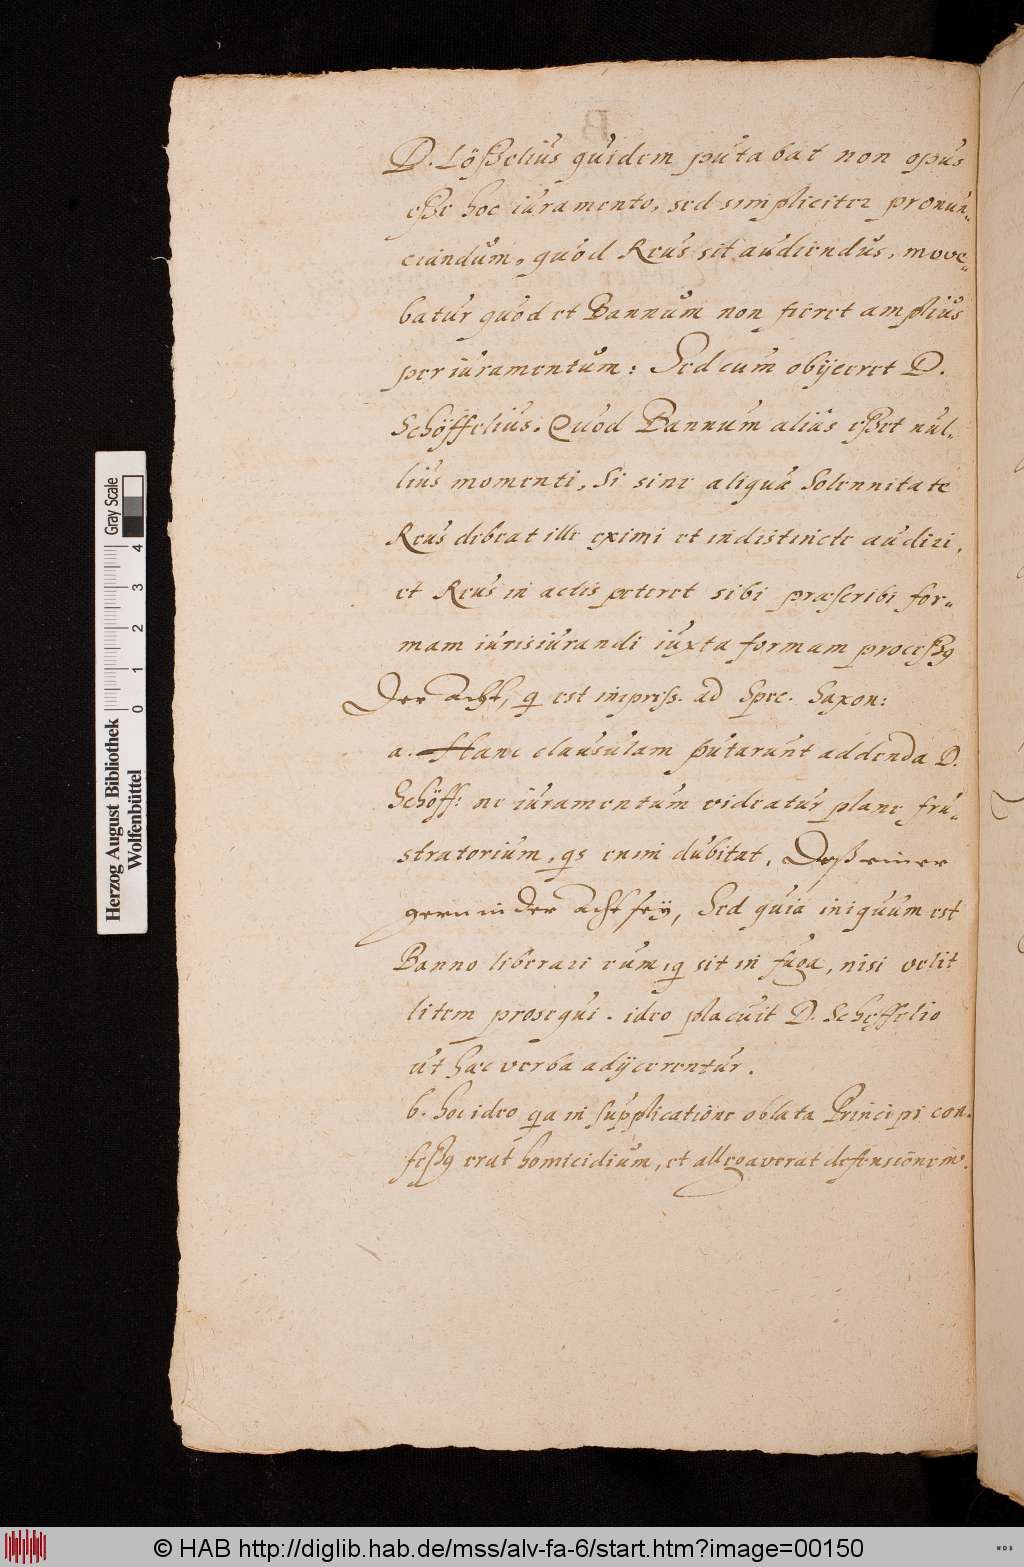 D. Lößelius quidem putabat non opus
eße hoc iuramento, sed simpliciter pronun-
ciandum, quod Reus sit audiendus, move-
batur quod et Bannum non fieret amplius
per iuramentum: Sed cum obijceret D.
Schöffelius. Quod Bannum alias eßet nul-
lius momenti, Si sine aliqua Solennitate
Reus debeat ille eximi et indistincte audiri,
et Reus in actis peteret sibi præscribi for-
mam iurisiurandi iuxta formam proceßq
Der Acht, q est impress. ad Spec. Saxon:
a. Hanc clausulam putarunt addenda D.
Schöff: ne iuramentum videatur plane fru-
stratorium, qs enim dubitat, Daß einer
gern in der Acht sey, Sed quia iniquum est
Banno liberari eum, q sit in fuga, nisi velit
litem prosequi. ideo placuit D. Scheffelio
ut hæc verba adijcerentur.
b. hoc ideo qa in supplicatione oblata Principi con-
feßq erat homicidium, et allegaverat defensionem.
Herzog August Bibliothek
Wolfenbüttel
0 1 2 3 4
Gray Scale
© HAB http://diglib.hab.de/mss/alv-fa-6/start.htm?image=00150